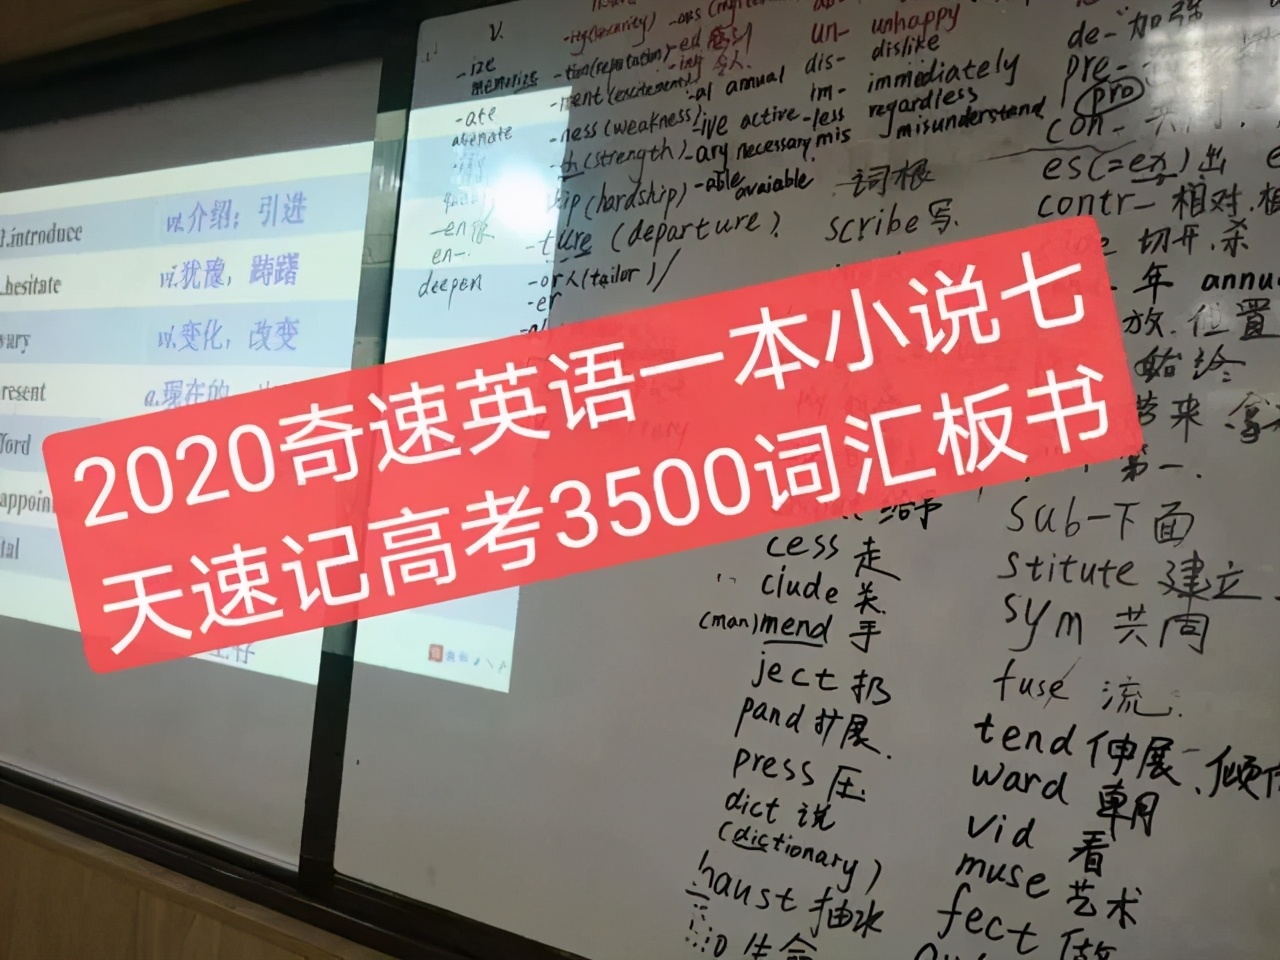 2020奇速英语一本小说七
天速记高考3500词汇板书
introduce vt.介绍；引进
hesitate vi.犹豫，踌躇
vary vi.变化，改变
resent a.现在的
ord
appoin
tal
V.
-ize
memorize
-ate
-en
en-
deepen
-tion(reputation)
-ment(excitement)
-ness(weakness)
-th(strength)
(hardship)
-ture(departure)
-or人(tailor)
-er
-al annual
-ive active
-ary necessary
-able avaiable
un- unhappy
dis- dislike
im- immediately
-less regardless
mis misunderstand
词根
scribe 写
cess 走
clude 关
(man)mend 手
ject 扔
pand 扩展
press 压
dict 说
(dictionary)
haust 抽水
生命
de- 加强
pre-
pro
con- 共同
es(=ex)出
contr- 相对
切开.杀
年 annu
放.位置
带来.拿
第一.
sub-下面
stitute 建立
sym 共同
fuse 流
tend 伸展
ward 朝
vid 看
muse 艺术
fect 做